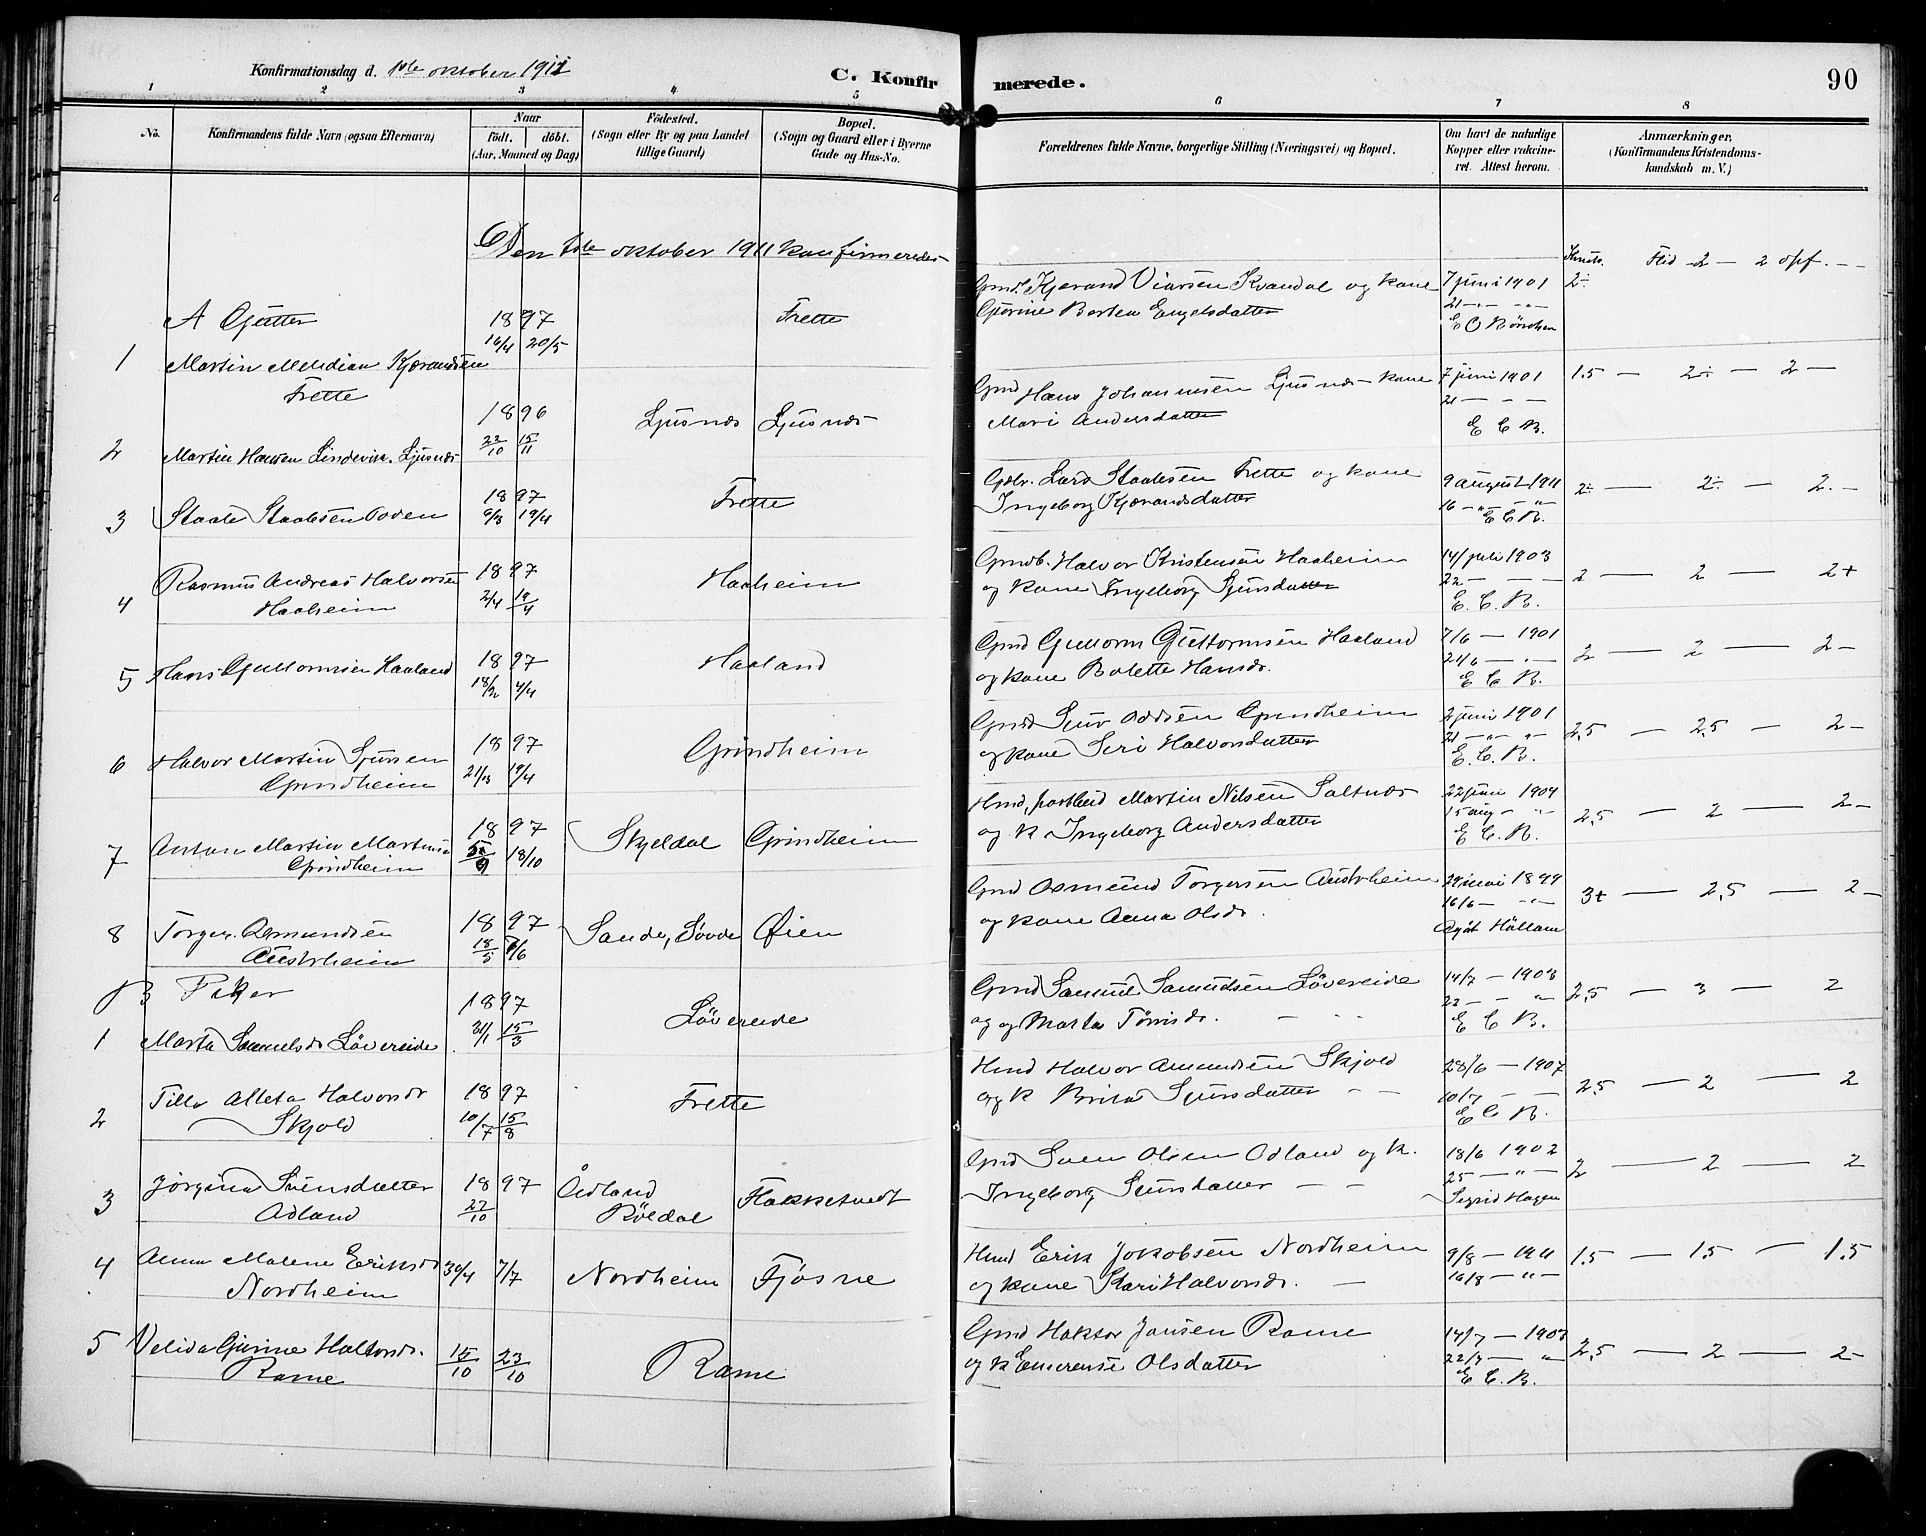 Konfirmationsdag d. 1ste oktober 1911
C. Konfirmerede.
90
1 2 3 4 5 6 7 8
No.
Konfirmandens fulde Navn (ogsaa Efternavn)
Naar
født. døbt.
(Aar, Maaned og Dag)
Fødested.
(Sogn eller By og paa Landet
tillige Gaard)
Bopæl.
(Sogn og Gaard eller i Byerne
Gade og Hus-No.
Forældrenes fulde Navne, borgerlige Stilling (Næringsvei) og Bopæl.
Om havt de naturlige
Kopper eller vakcine-
ret. Attest herom.
Anmærkninger,
(Konfirmandens Kristendoms-
kundskab m. V.)
Den 1ste oktober 1911 konfirmeredes
A Gutter
1 Martin Meldian Kjærandsen
Frette
1897
16/4 20/5
Frette
Kjærand Kvandal og kone
Gjørine Engelsdatter
7 juni 1901
21 - " - " -
2 -
Flid 2 - 2 opf. -
2 Martin Hansen Ljusnæs
1896
22/10 15/11
Ljusnæs Ljusnæs
Hans Johannesen Ljusnæs - kone
Mari Andersdatter
7 juni 1901
21 - " -
E C B.
1.5 - 2 - - 2 -
3 Staale Staalesen
1897
9/3 19/4
Frette
Lars Staalesen Frette og kone
Ingeborg Kjærandsdatter
9 august 1911
16 - " - " -
E C B.
2 - - 2 - - 2 -
4 Rasmus Andreas Halvorsen
Haaheim
1897
2/4 19/4
Haaheim
Halvor Kristensen Haaheim
og kone Ingeborg Sjursdatter
14/juli 1903
22 - - -
E. C. B.
2 - 2 - 2+
5 Hans Guttormsen Haaland
1897
18/2 4/4
Haaland
Gmd Guttorm Guttormsen Haaland
og kone Bolette Hansdr.
7/6 - 1901
21/6 - " -
E C B.
2 - 2 - 2 -
6 Halvor Martin Sjursen
Grindheim
1897
21/3 19/4
Grindheim
Gmd Sjur Oddsen Grindheim
og kone Siri Halvorsdatter
2 juni 1901
21 - " - " -
E. C. B.
2,5 - 2,5 - 2 -
7 Anton Martin Martinsen
Grindheim
1897
18/10
Skjeldal Grindheim
Hmd, Martin Nilsen Saltnæs
og k Ingeborg Andersdatter
1904
15 aug - " -
E C B.
2,5 - 2 - 2 -
8 Torger Asmundsen
Austrheim
1897
18/5 /6
Sande, Søvde Øien
Gmd Osmund Torgersen Austrheim
og kone Anna Olsdr.
29 mai 1899
16/6 - " -
3+ - 2,5 - 2 -
B Piker
1 Marta Samuelsdr Løvereide
1897
31/1 15/3
Løvereide
Gmd Samuel Samuelsen Løvereide
og Marta Tønisdr. -
14/7 - 1903
22 - - " -
E C B.
2,5 - 3 - 2
2 Tilla Alleta Halvorsdr
Skjold
1897
10/7 15/8
Frette
Hmd Halvor Amundsen Skjold
og k Brita Sjursdatter - -
28/6 - 1907
10/7 - -
E C B.
2,5 - 2 - 2
3 Jørgina Svensdatter
Ådland
1897
27/10
Ådland
Röldal
Flakketvedt
Gmd Sven Olsen Ådland og k.
Ingeborg Sjursdatter - -
18/6 1902
25 - " -
Sigrid Hagen
2 - 2 - 2
4 Anna Malene Eriksdr
Nordheim
30/4 7/7
Nordheim Fjøsne
Hmd Erik Jokobsen Nordheim
og kone Kari Halvorsdr. -
9/8 - 1911
16/8 - " -
1.5 - 1.5 - 1.5
5 Velida Gurine
Rame
15/10 23/10
Rame
Gmd Haktor Jansen Rame
og k Emerense Olsdatter
14/7 - 1903
22/7 - "
E C B.
2,5 - 2 - 2 -